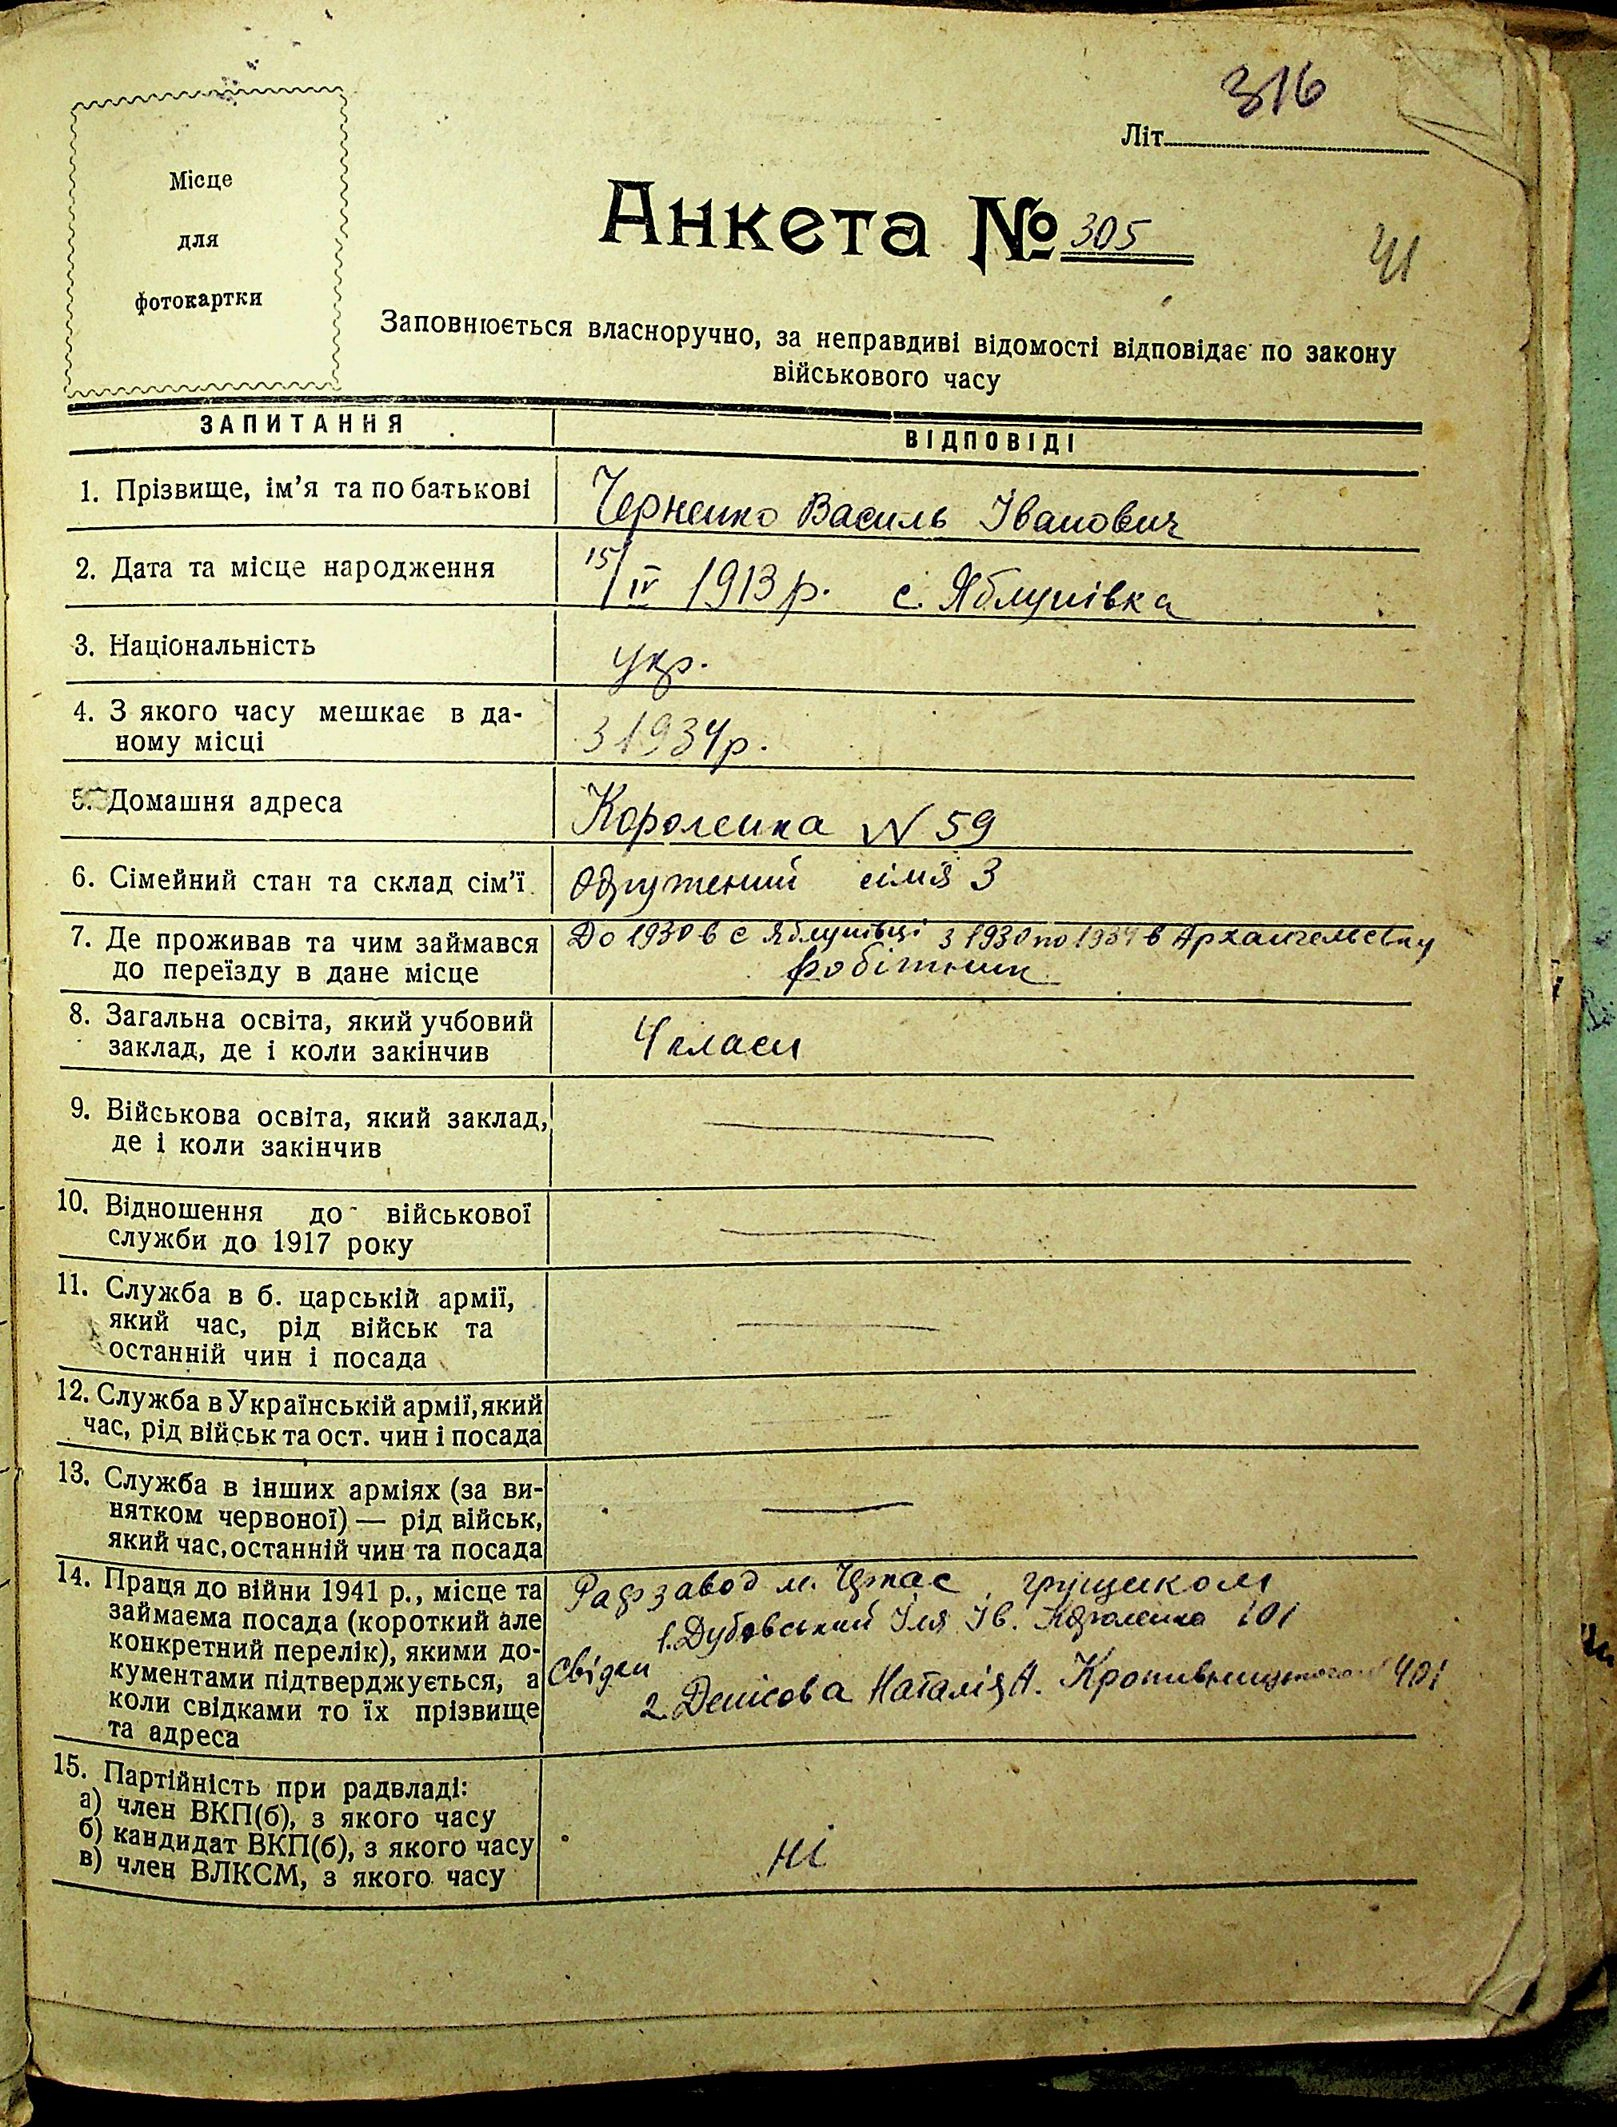 316
Літ
Місце
для
фотокартки
Анкета № 305
41
Заповнюється власноручно, за неправдиві відомості відповідає по закону
військового часу
ЗАПИТАННЯ
ВІДПОВІДІ
1. Прізвище, ім'я та по батькові
Черненко Василь Іванович
2. Дата та місце народження
15/IV 1913 р. с. Яблунівка
3. Національність
укр.
4. З якого часу мешкає в да-
ному місці
З 1934 р.
5. Домашня адреса
Короленка N 59
6. Сімейний стан та склад сім'ї
Одружений сімія 3
7. Де проживав та чим займався
до переїзду в дане місце
До 1930 в с Яблунівці з 1930 по 1934 в Архангельську
робітник
8. Загальна освіта, який учбовий
заклад, де і коли закінчив
4 класи
9. Військова освіта, який заклад,
де і коли закінчив
10. Відношення до військової
служби до 1917 року
11. Служба в б. царській армії,
який час, рід військ та
останній чин і посада
12. Служба в Українській армії, який
час, рід військ та ост. чин і посада
13. Служба в інших арміях (за ви-
нятком червоної) — рід військ,
який час, останній чин та посада
14. Праця до війни 1941 р., місце та
займаєма посада (короткий але
конкретний перелік), якими до-
кументами підтверджується, а
коли свідками то їх прізвище
та адреса
завод м. грущиком
1. Дубовський Іля Ів. Короленка 101
Свідки
2. Денісова Наталія А. 401
15. Партійність при радвладі:
а) член ВКП(б), з якого часу
б) кандидат ВКП(б), з якого часу
в) член ВЛКСМ, з якого часу
ні